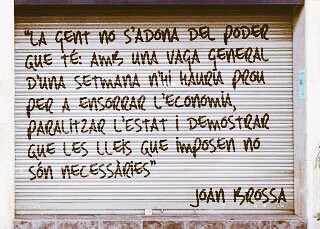 "LA GENT NO S'ADONA DEL PODER
QUE TÉ: AMB UNA VAGA GENERAL
D'UNA SETMANA N'HI HAURIA PROU
PER A ENSORRAR L'ECONOMIA,
PARALITZAR L'ESTAT I DEMOSTRAR
QUE LES LLEIS QUE IMPOSEN NO
SÓN NECESSÀRIES"
JOAN BROSSA